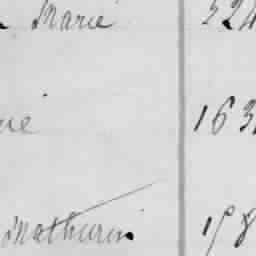 Marie 324
ie 163
Mathurin 198